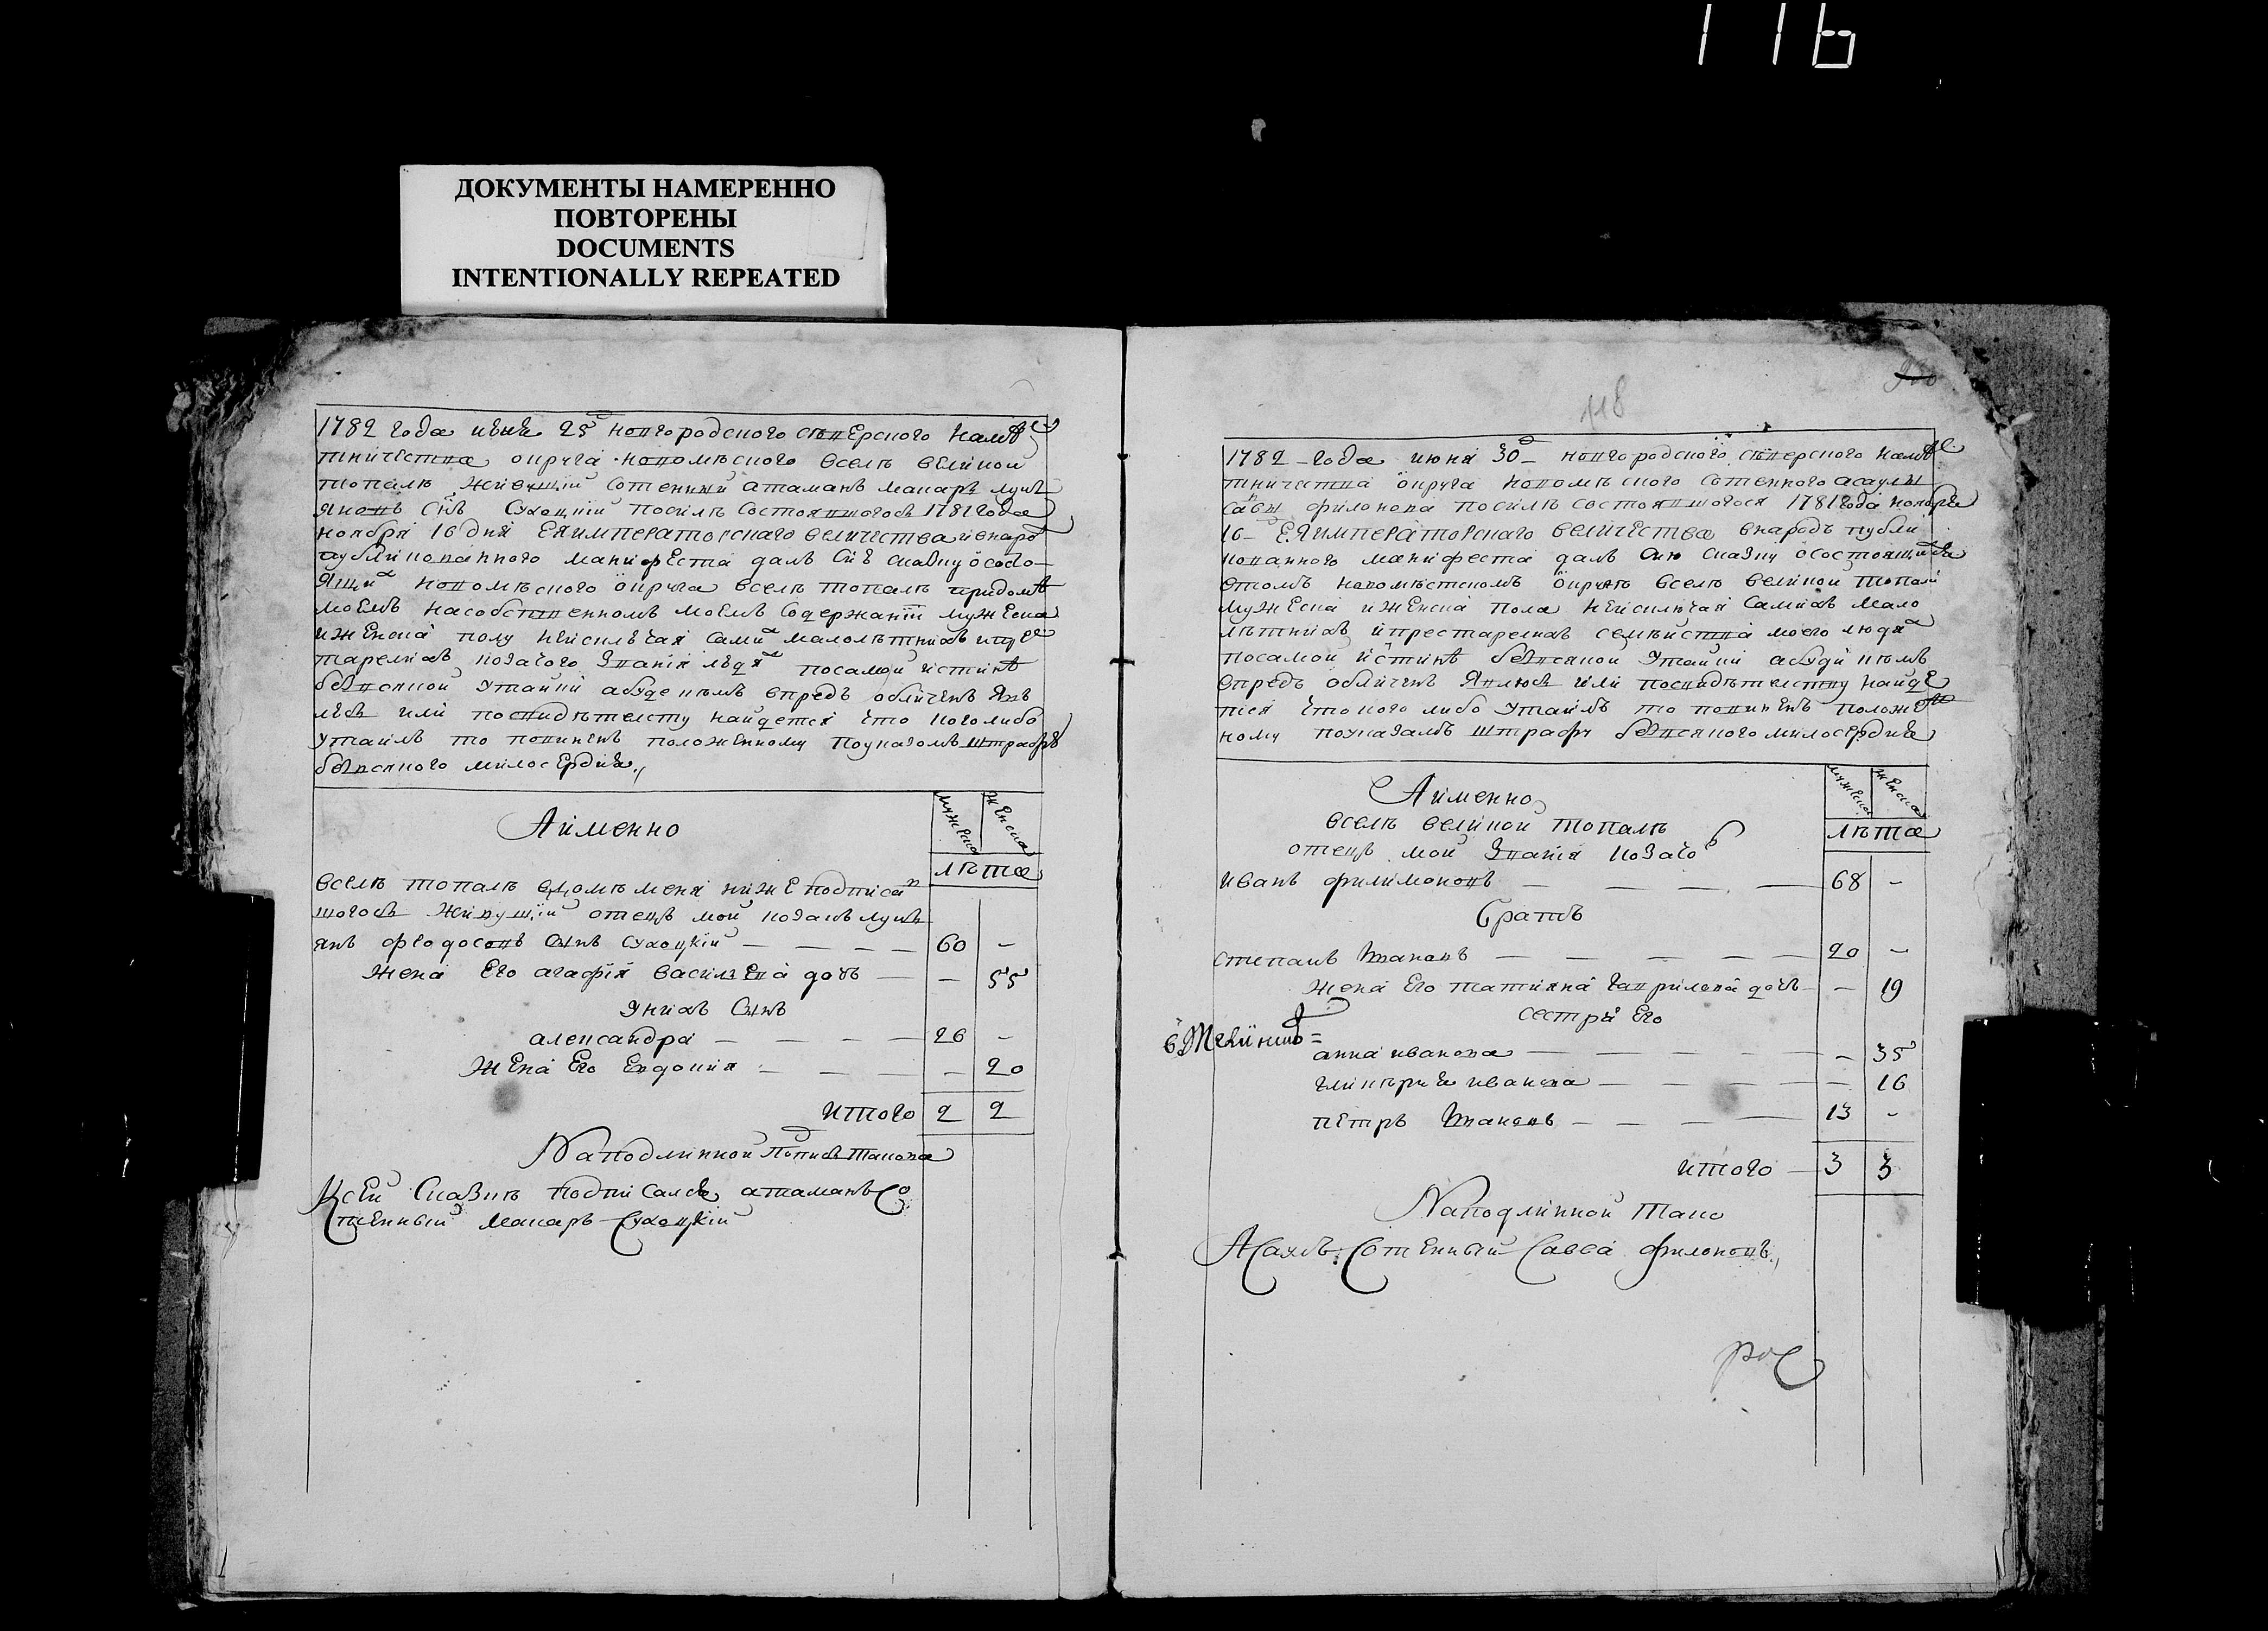 116
ДОКУМЕНТЫ НАМЕРЕННО
ПОВТОРЕНЫ
DOCUMENTS
INTENTIONALLY REPEATED
1782 года июня 25 новгородского северского намѣс
тничества округа новомѣского вселѣ великои
топалѣ живущiй сотенный атаманъ макаръ лукь
яновъ снъ Сухоцкiй посилѣ состоявшогось 1781 года
ноября 16 дня ЕЯ императорского величества и внарод
публикованного манифеста далъ сiю сказку ососто
ящих новомѣского округа вселѣ топалѣ придомѣ
моемъ насобственномъ моемъ содержанiи мужеска
и женска полу неисключая самих малолѣтних
тарелих козачого званiя людях посамой истинѣ
безвсякой утайки абуде кѣмъ впредь обличенъ явь
люсь или посвидѣтелству найдется что кого либо
утаилъ то повиненъ положенному поуказомъ штрафу
безвсякого милосердия
А именно
мужеска женска
лѣта
вселѣ топалѣ вдомѣ меня ниже подписав
шогось живущiй отецъ мой козакъ лукь
янъ феодосовъ снъ сухоцкiй — 60 -
жена его агафiя василева дочь — - 55
Унихъ снъ
александра — 26 -
жена его Евдокия — - 20
итого 2 2
На подлинной подпись такова
К сей сказкѣ подписался атаманъ со
тенный макаръ Сухоцкiй
118
1782 года июня 30 новгородского северского намѣс
тничества округа новомѣского сотенного асаулы
савы филонова посилѣ состоявшогося 1781 года ноября
16 ЕЯ императорского величества внародъ публи
кованного манифеста далъ сию сказку осостоящихъ
втомъ новомѣстскомъ округѣ вселѣ великой топали
мужеска и женска пола неисключая самихъ мало
лѣтнихъ и престарелихъ семѣиства моего людях
посамой истинѣ безвсякой утайки абуди кѣмъ
впредь обличенъ явлюсь или посвидѣтелству найде
тся что кого либо утаилъ то повиненъ положен
ному поуказамъ штрафу безвсякого милосердия
А именно
вселѣ великой топалѣ
отецъ мой званiя козачого
мужеска женска
лѣта
иванъ филимоновъ — 68 -
братъ
степанъ Ивановъ — 20 -
жена его татияна гаврилова дочь — - 19
сестры его
анна иванова — - 35
гликѣрия иванова — - 16
петръ Ивановъ — 13 -
итого 3 3
На подлинной тако
Асаулъ Сотенный Савва филоновъ